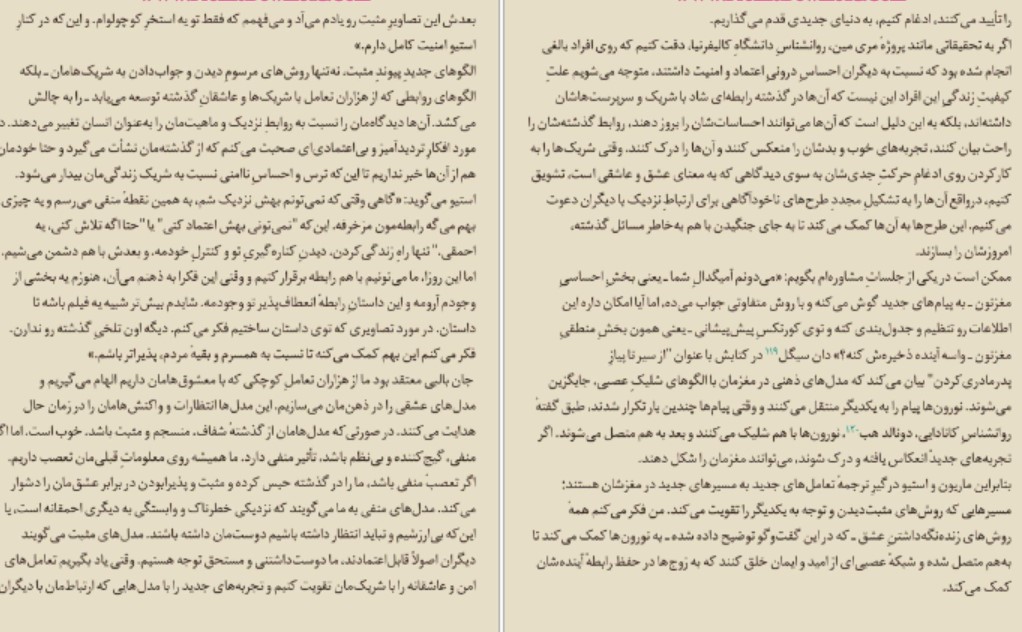 بعدش این تصاویرِ مثبت رو یادم می‌آد و می‌فهمم که فقط تو یه استخرِ کوچولوام. و این‌که در کنار
استیو امنیت کامل دارم.»
الگوهای جدیدِ پیوندِ مثبت، نه‌تنها روش‌های مرسومِ دیدن و جواب‌دادن به شریک‌هامان ـ بلکه
الگوهای روابطی که از هزاران تعامل با شریک‌ها و عاشقانِ گذشته توسعه می‌یابد ـ را به چالش
می‌کشد. آن‌ها دیدگاه‌مان را نسبت به روابطِ نزدیک و ماهیت‌مان را به‌عنوان انسان تغییر می‌دهند. د
مورد افکارِ تردیدآمیز و بی‌اعتمادی‌ای صحبت می‌کنم که از گذشته‌مان نشأت می‌گیرد و حتا خودمان
هم از آن‌ها خبر نداریم تا این‌که ترس و احساسِ ناامنی نسبت به شریک زندگی‌مان بیدار می‌شود.
استیو می‌گوید: «گاهی وقتی‌که نمی‌تونم بهش نزدیک شم، به همین نقطهٔ منفی می‌رسم و یه چیزی
بهم می‌گه رابطه‌مون مزخرفه. این‌که "نمی‌تونی بهش اعتماد کنی" یا "حتا اگه تلاش کنی، یه
احمقی." تنها راهِ زندگی‌کردن، دیدنِ کناره‌گیریِ تو و کنترلِ خودمه. و بعدش با هم دشمن می‌شیم.
اما این روزا، ما می‌تونیم با هم رابطه برقرار کنیم و وقتی این فکرا به ذهنم می‌آن، هنوزم یه بخشی از
وجودم آرومه و این داستانِ رابطهٔ انعطاف‌پذیرِ تو وجودمه. شایدم بیش‌تر شبیه یه فیلم باشه تا
داستان. در مورد تصاویری که توی داستان ساختیم فکر می‌کنم. دیگه اون تلخیِ گذشته رو ندارن.
فکر می‌کنم این بهم کمک می‌کنه تا نسبت به همسرم و بقیهٔ مردم، پذیراتر باشم.»
جان بالبی معتقد بود ما از هزاران تعاملِ کوچکی که با معشوق‌هامان داریم الهام می‌گیریم و
مدل‌های عشقی را در ذهن‌مان می‌سازیم. این مدل‌ها انتظارات و واکنش‌هامان را در زمان حال
هدایت می‌کنند. در صورتی‌که مدل‌هامان از گذشتهٔ شفاف، منسجم و مثبت باشد، خوب است. اما اگ
منفی، گیج‌کننده و بی‌نظم باشد، تأثیر منفی دارد. ما همیشه روی معلوماتِ قبلی‌مان تعصب داریم.
اگر تعصبْ منفی باشد، ما را در گذشته حبس کرده و مثبت و پذیرابودن در برابر عشق‌مان را دشوار
می‌کند. مدل‌های منفی به ما می‌گویند که نزدیکی خطرناک و وابستگی به دیگری احمقانه است، یا
این‌که بی‌ارزشیم و نباید انتظار داشته باشیم دوست‌مان داشته باشند. مدل‌های مثبت می‌گویند
دیگران اصولاً قابل‌اعتمادند، ما دوست‌داشتنی و مستحقِ توجه هستیم. وقتی یاد بگیریم تعامل‌های
امن و عاشقانه را با شریک‌مان تقویت کنیم و تجربه‌های جدید را با مدل‌هایی که ارتباط‌مان با دیگران
را تأیید می‌کنند، ادغام کنیم، به دنیای جدیدی قدم می‌گذاریم.
اگر به تحقیقاتی مانند پروژهٔ مری مین، روانشناسِ دانشگاهِ کالیفرنیا، دقت کنیم که روی افراد بالغی
انجام شده بود که نسبت به دیگران احساسِ درونیِ اعتماد و امنیت داشتند، متوجه می‌شویم علتِ
کیفیتِ زندگیِ این افراد این نیست که آن‌ها در گذشته رابطه‌ای شاد با شریک و سرپرست‌هاشان
داشته‌اند، بلکه به این دلیل است که آن‌ها می‌توانند احساسات‌شان را بروز دهند، روابط گذشته‌شان را
راحت بیان کنند، تجربه‌های خوب و بدشان را منعکس کنند و آن‌ها را درک کنند. وقتی شریک‌ها را به
کارکردن روی ادغامِ حرکتِ جدی‌شان به سوی دیدگاهی که به معنای عشق و عاشقی است، تشویق
کنیم، درواقع آن‌ها را به تشکیلِ مجددِ طرح‌های ناخودآگاهی برای ارتباطِ نزدیک با دیگران دعوت
می‌کنیم. این طرح‌ها به آن‌ها کمک می‌کند تا به جای جنگیدن با هم به‌خاطر مسائل گذشته،
امروزشان را بسازند.
ممکن است در یکی از جلساتِ مشاوره‌ام بگویم: «می‌دونم آمیگدالِ شما ـ یعنی بخشِ احساسیِ
مغزتون ـ به پیام‌های جدید گوش می‌کنه و با روش متفاوتی جواب می‌ده، اما آیا امکان داره این
اطلاعات رو تنظیم و جدول‌بندی کنه و توی کورتکسِ پیش‌پیشانی ـ یعنی همون بخشِ منطقیِ
مغزتون ـ واسه آینده ذخیره‌ش کنه؟» دان سیگل۱۱۹ در کتابش با عنوان "از سیر تا پیازِ
پدرمادری‌کردن" بیان می‌کند که مدل‌های ذهنی در مغزمان با الگوهای شلیکِ عصبی، جایگزین
می‌شوند. نورون‌ها پیام را به یکدیگر منتقل می‌کنند و وقتی پیام‌ها چندین بار تکرار شدند، طبق گفتهٔ
روانشناسِ کانادایی، دونالد هب۱۲۰، نورون‌ها با هم شلیک می‌کنند و بعد به هم متصل می‌شوند. اگر
تجربه‌های جدیدْ انعکاس یافته و درک شوند، می‌توانند مغزمان را شکل دهند.
بنابراین ماریون و استیو درگیرِ ترجمهٔ تعامل‌های جدید به مسیرهای جدید در مغزشان هستند؛
مسیرهایی که روش‌های مثبت‌دیدن و توجه به یکدیگر را تقویت می‌کند. من فکر می‌کنم همهٔ
روش‌های زنده‌نگه‌داشتنِ عشق ـ که در این گفت‌وگو توضیح داده شده ـ به نورون‌ها کمک می‌کند تا
به‌هم متصل شده و شبکهٔ عصبی‌ای از امید و ایمان خلق کنند که به زوج‌ها در حفظ رابطهٔ آینده‌شان
کمک می‌کند.